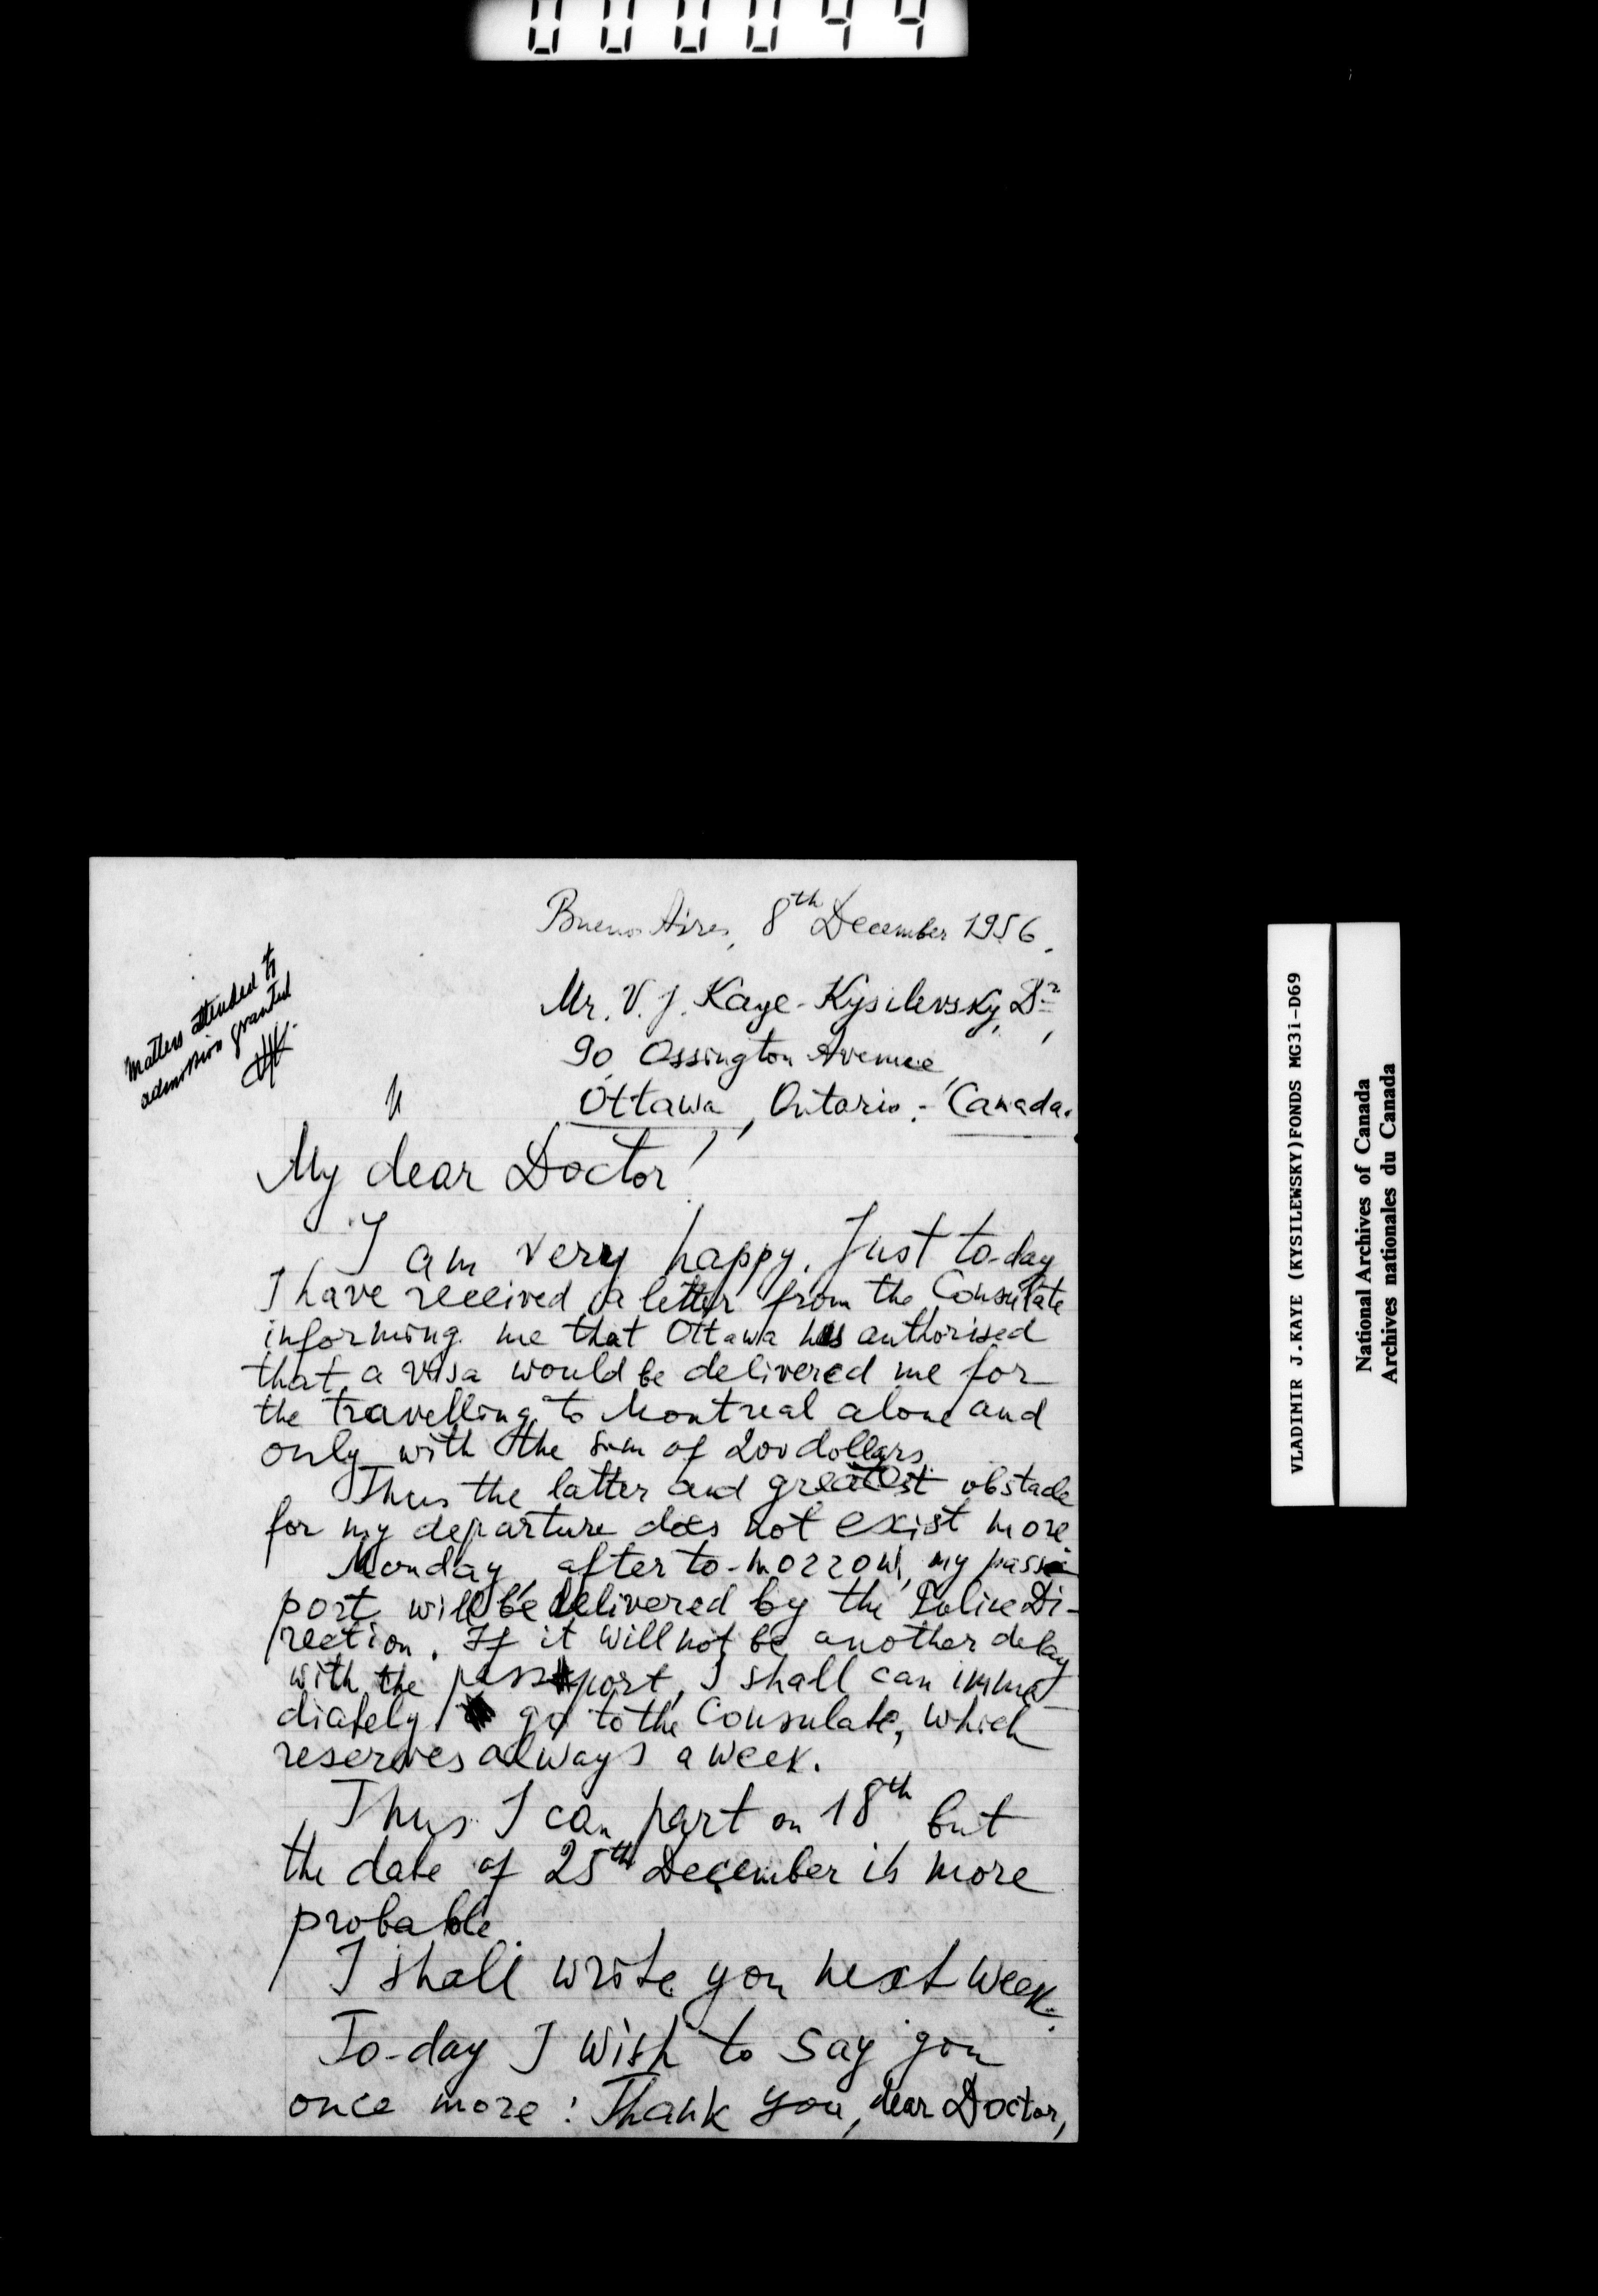 000044
Buenos Aires, 8th December 1956.
Matters attended to
admission granted
Mr. V. J. Kaye-Kysilevsky, Dr,
90, Ossington Avenue,
Ottawa, Ontario.- Canada.
My dear Doctor!
I am very happy. Just to-day
I have received a letter from the Consulate
informing me that Ottawa has authorised
that a visa would be delivered me for
the travelling to Montreal alone and
only with the sum of 200 dollars.
Thus the latter and greatest obstacle
for my departure does not exist more.
Monday, after to-morrow, my pass-
port will be delivered by the Police Di-
rection. If it will not be another delay
with the passport, I shall can imme-
diately go to the Consulate, which
reserves always a week.
Thus I can part on 18th but
the date of 25th December is more
probable.
I shall write you next week.
To-day I wish to say you
once more: Thank you, dear Doctor,
VLADIMIR J.KAYE (KYSILEWSKY)FONDS MG31-D69
National Archives of Canada
Archives nationales du Canada